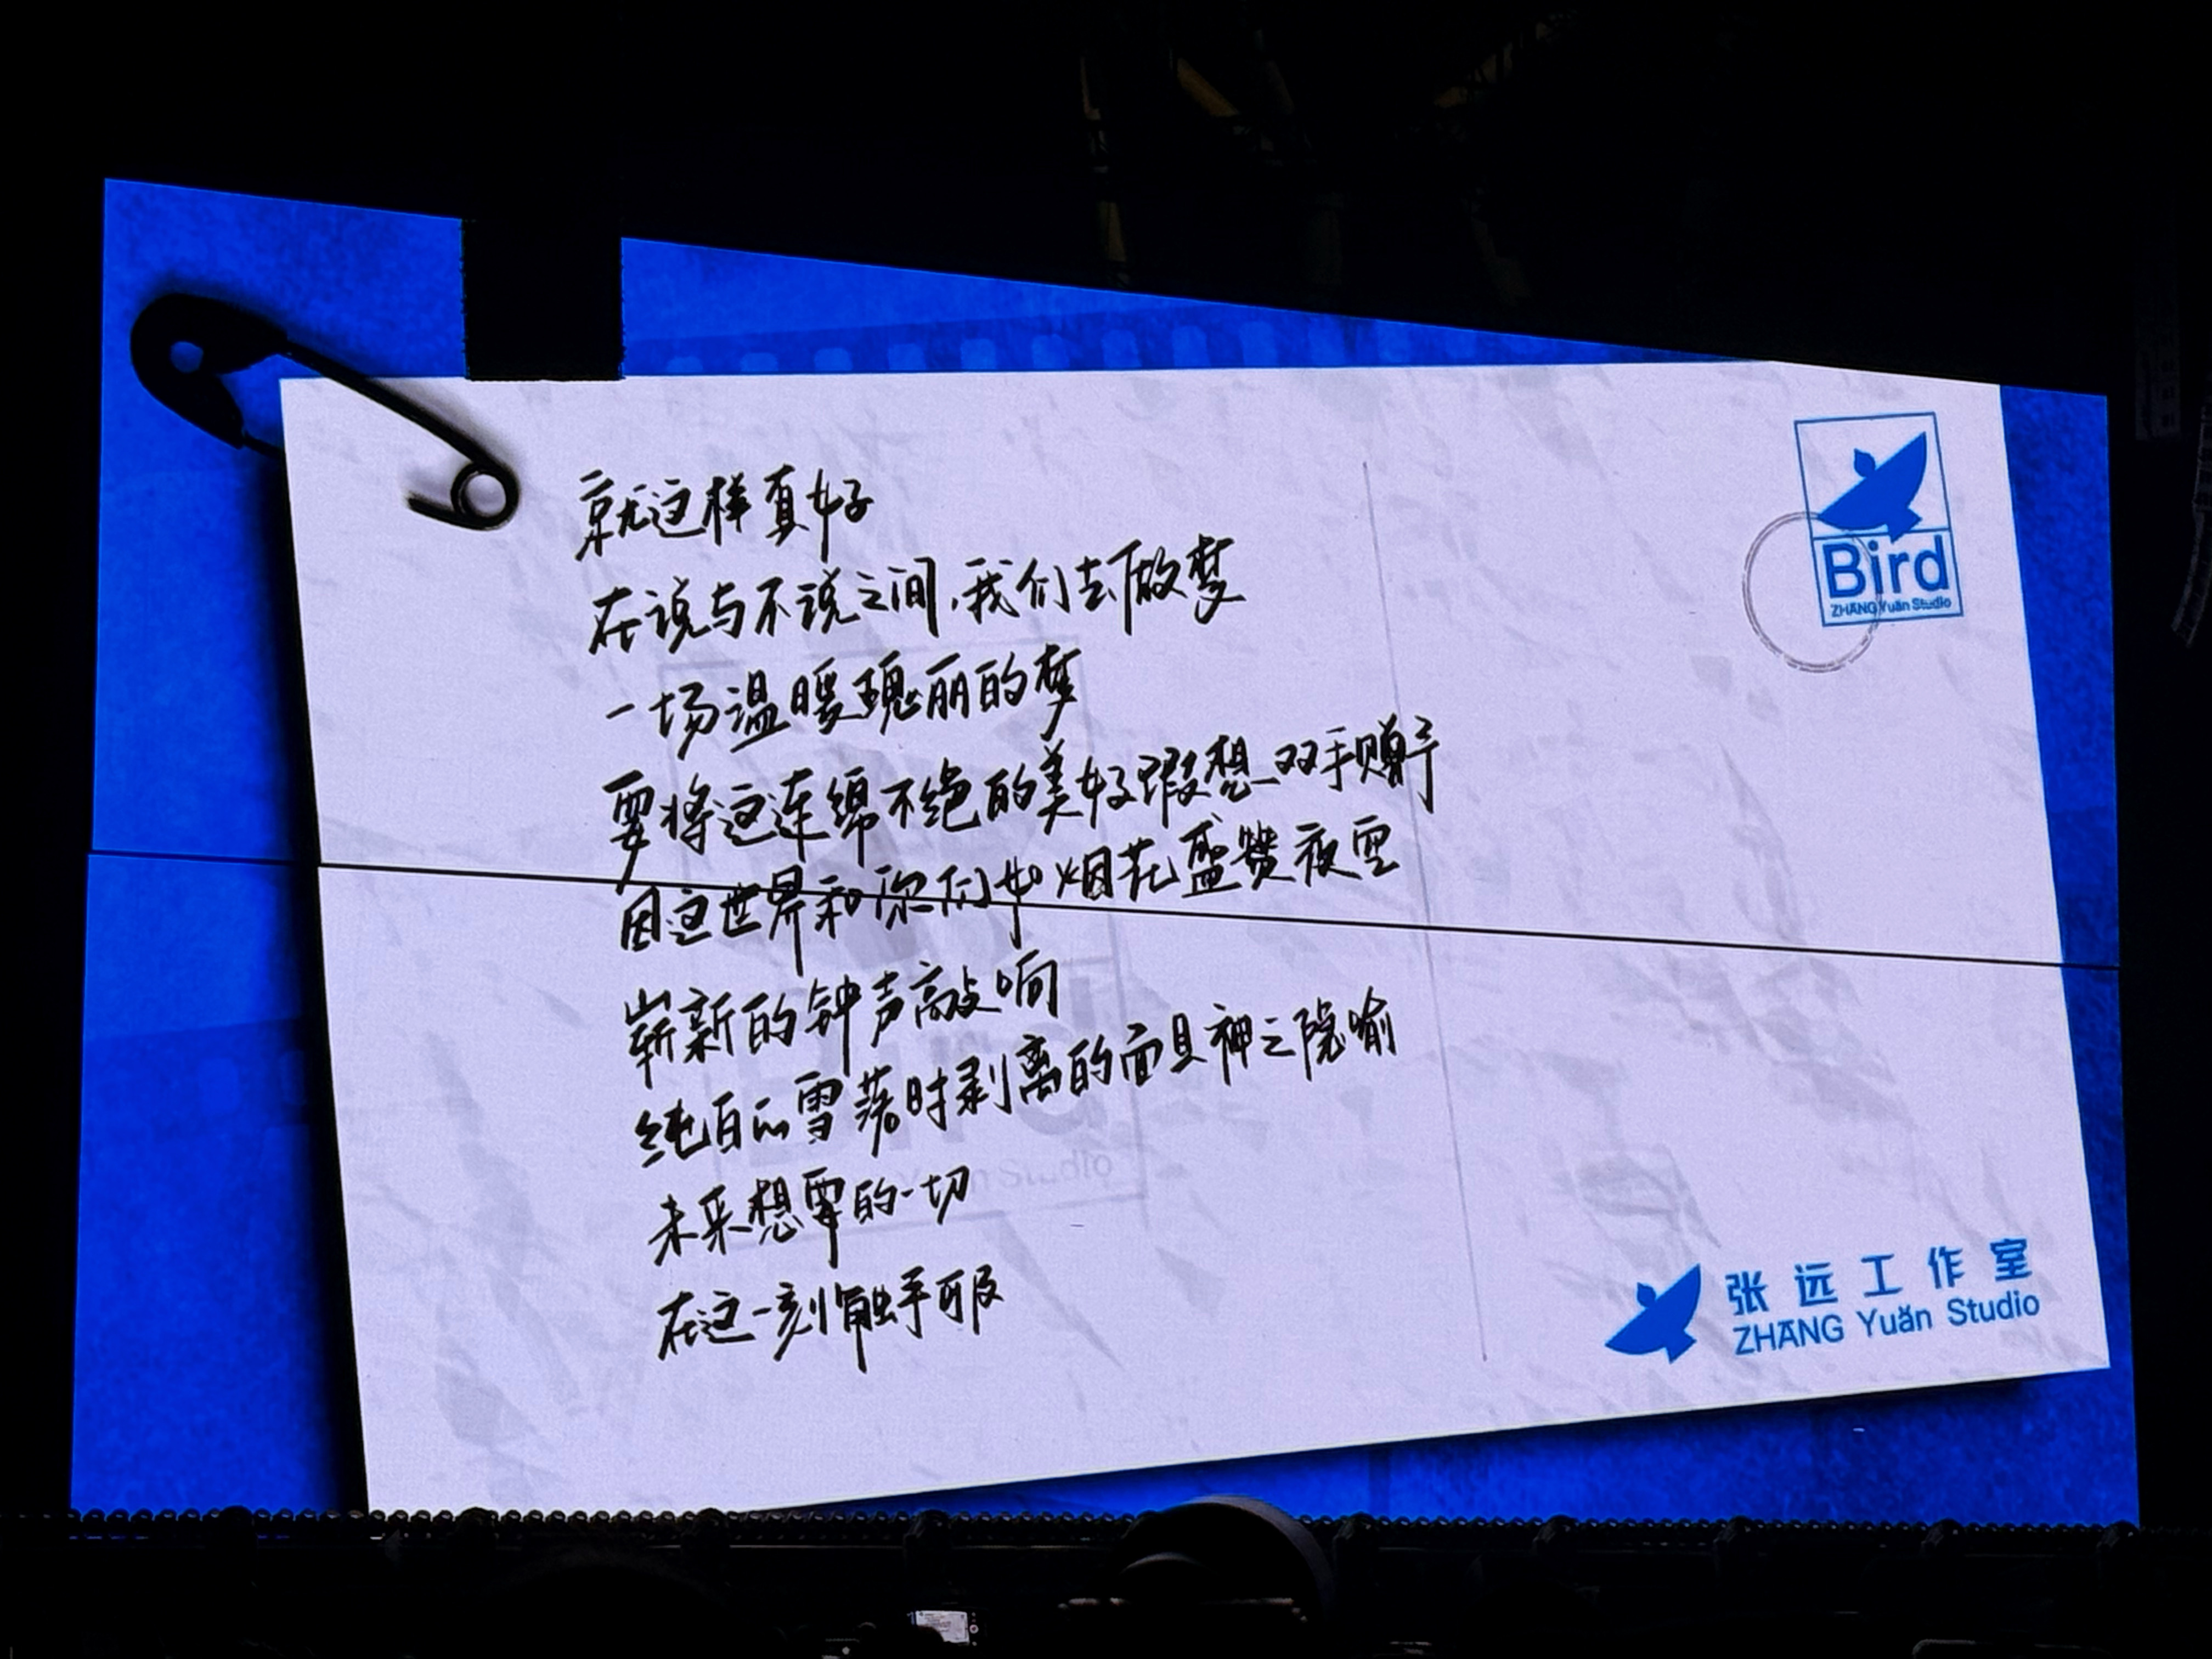 就这样真好
在说与不说之间,我们去做梦
一场温暖瑰丽的梦
要将这连绵不绝的美好瑕想双手赠予
因这世界和你们如烟花盛赞夜空
崭新的钟声敲响
纯白的雪落时剥离的面具神之隐喻
未来想要的一切
在这一刻触手可及
Bird
ZHANG Yuǎn Studio
张远工作室
ZHANG Yuǎn Studio